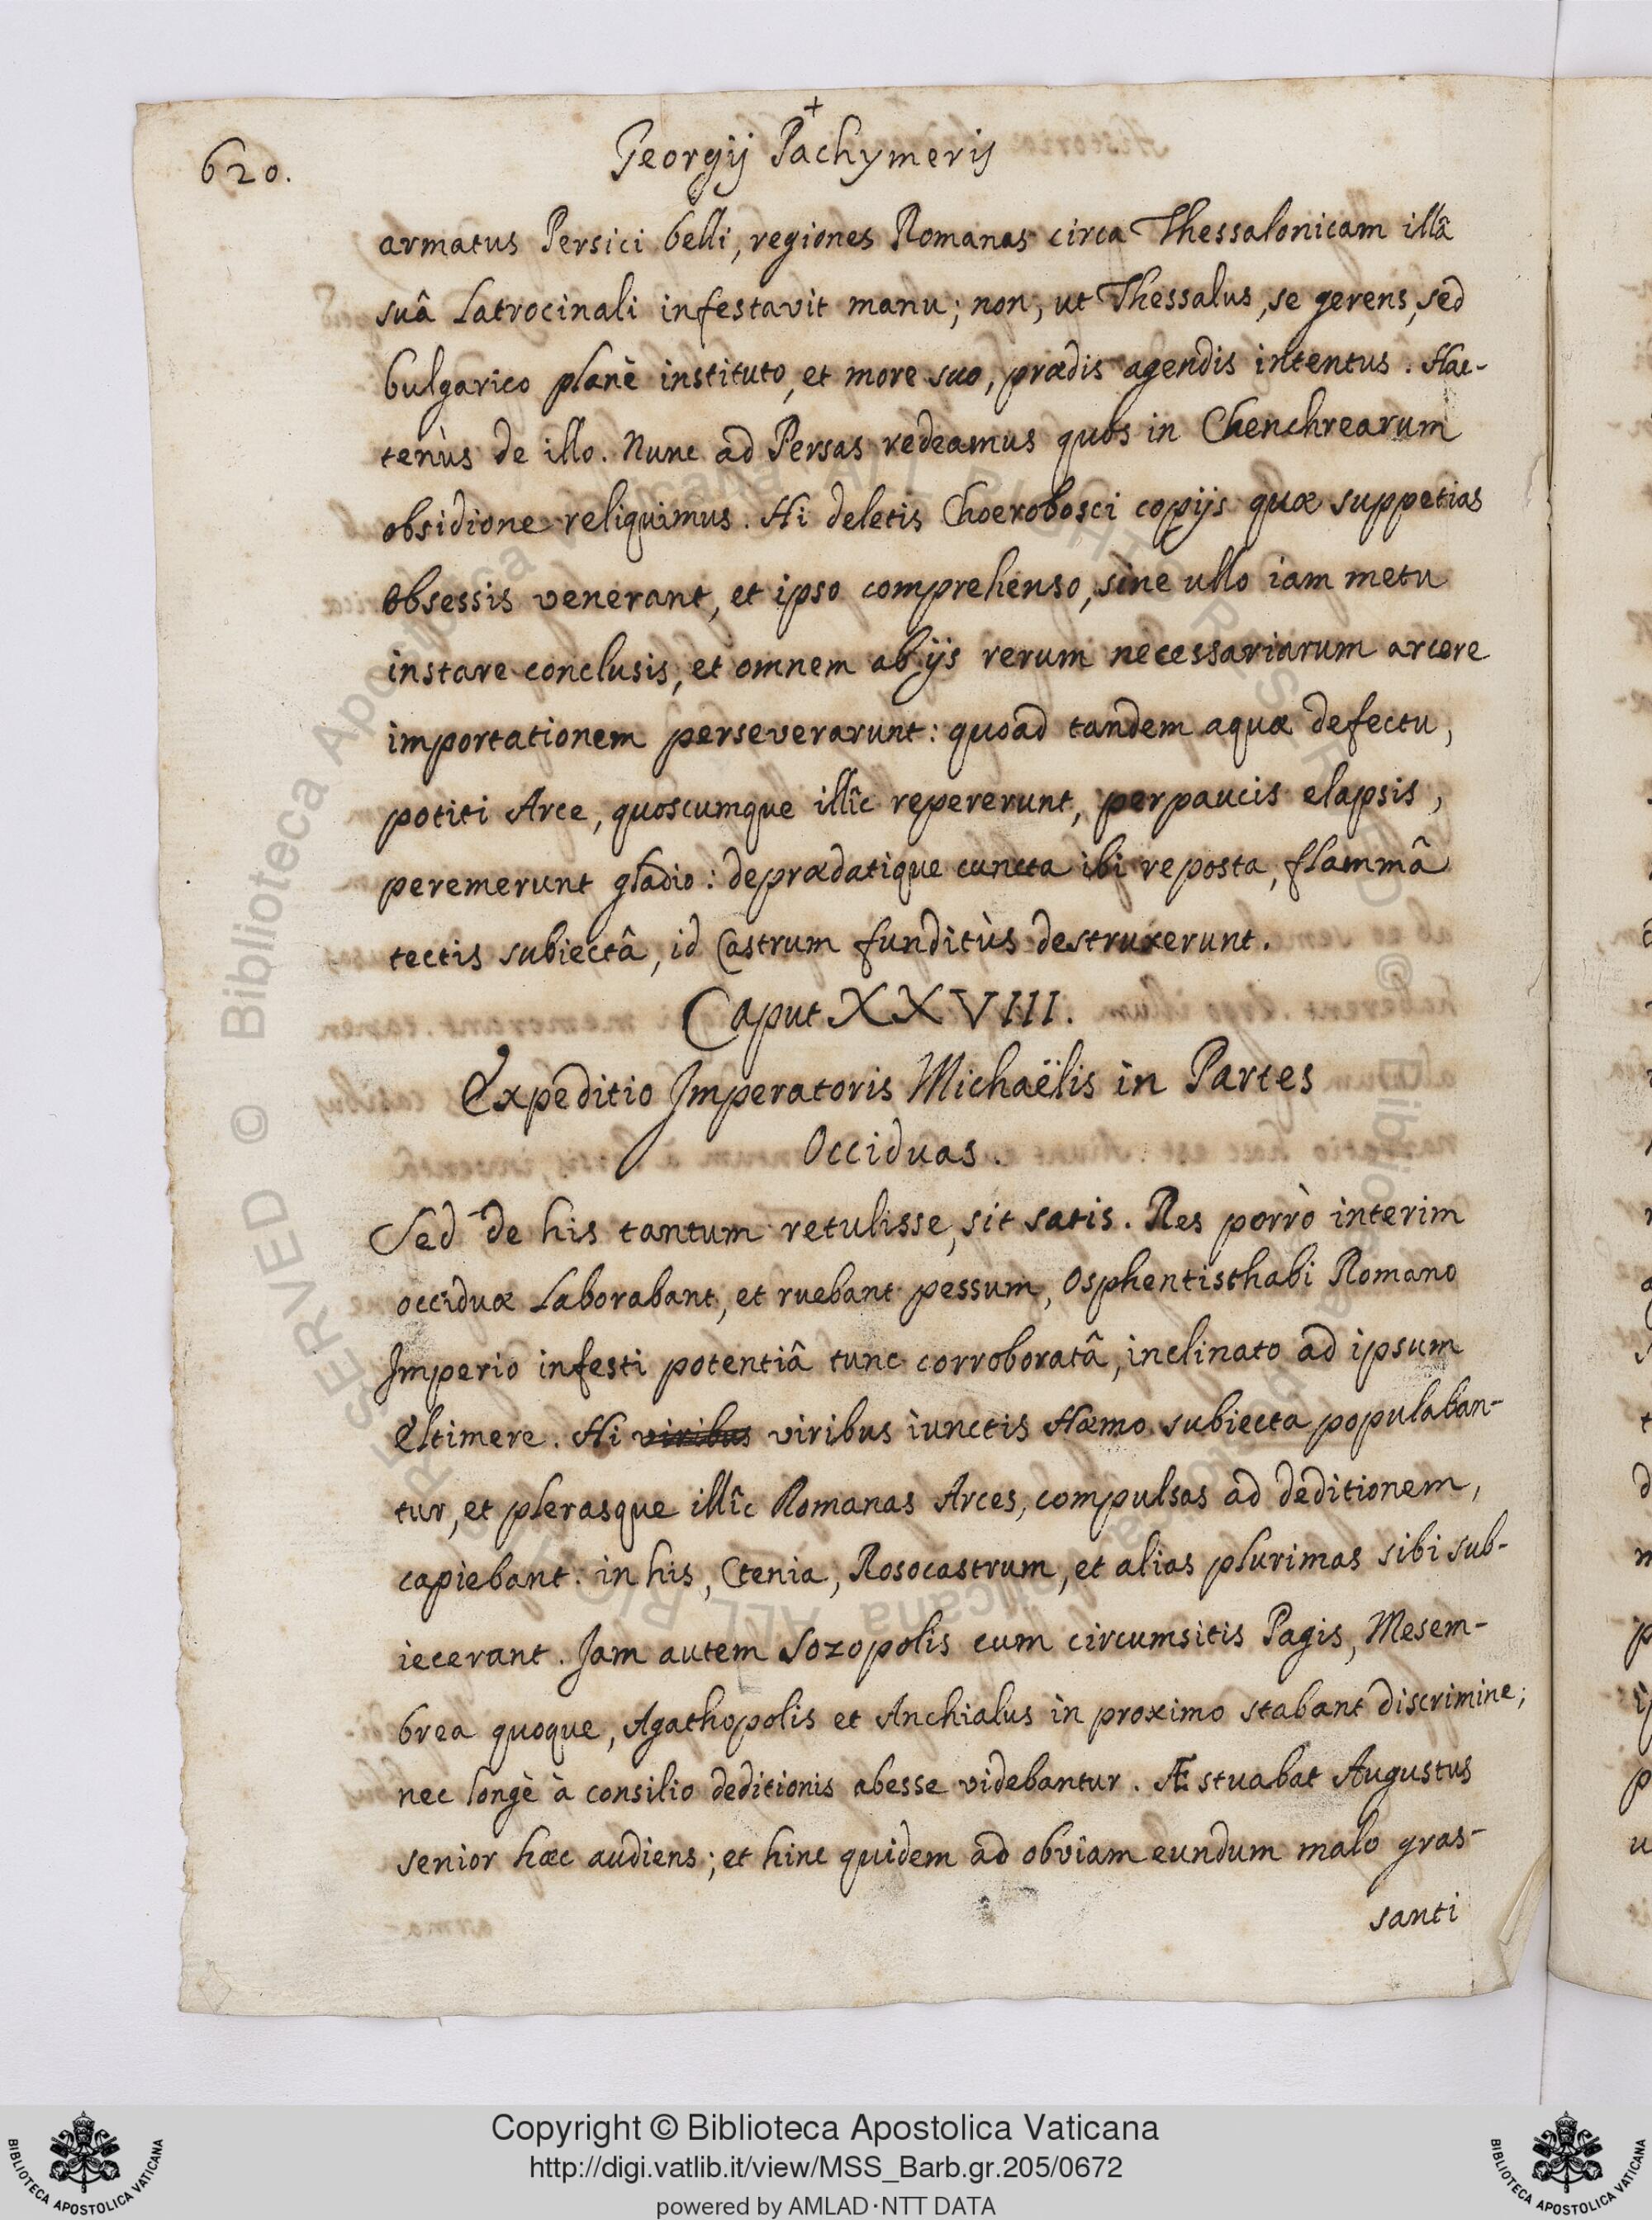 620.
+
Georgij Pachymeris
armatus Persici belli, regiones Romanas circa Thessalonicam illâ
suâ Latrocinali infestavit manu; non, ut Thessalus, se gerens, sed
bulgarico planè instituto, et more suo, prædis agendis intentus. Hac-
tenùs de illo. Nunc ad Persas redeamus quos in Chenchrearum
obsidione reliquimus. Hi deletis Choerobosci copijs quæ suppetias
obsessis venerant, et ipso comprehenso, sine ullo iam metu
instare conclusis, et omnem ab ijs rerum necessariarum arcere
importationem perseverarunt: quoad tandem aquæ defectu,
potiti Arce, quoscumque illîc repererunt, perpaucis elapsis,
peremerunt gladio: deprædatique cuncta ibi reposta, flammâ
tectis subiectâ, id Castrum funditùs destruxerunt.
Caput XXVIII.
Expeditio Imperatoris Michaëlis in Partes
Occiduas.
Sed de his tantum retulisse, sit satis. Res porrò interim
occiduæ Laborabant, et ruebant pessum, Osphentisthabi Romano
Imperio infesti potentiâ tunc corroboratâ, inclinato ad ipsum
Eltimere. Hi viribus viribus iunctis Hæmo subiecta populaban-
tur, et plerasque illîc Romanas Arces, compulsas ad deditionem,
capiebant: in his, Ctenia, Rosocastrum, et alias plurimas sibi sub-
iecerant. Jam autem Sozopolis cum circumsitis Pagis, Mesem-
brea quoque, Agathopolis et Anchialus in proximo stabant discrimine;
nec longè à consilio deditionis abesse videbantur. Æstuabat Augustus
senior hæc audiens; et hinc quidem ad obviam eundum malo gras-
santi
Copyright © Biblioteca Apostolica Vaticana
http://digi.vatlib.it/view/MSS_Barb.gr.205/0672
powered by AMLAD·NTT DATA